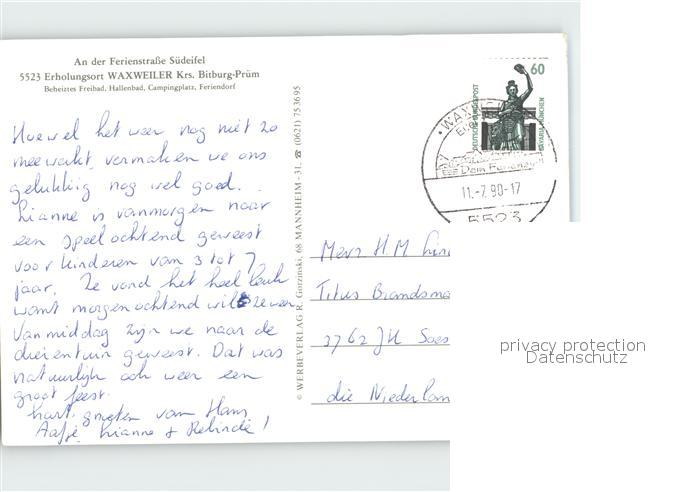 An der Ferienstraße Südeifel
5523 Erholungsort WAXWEILER Krs. Bitburg-Prüm
Beheiztes Freibad, Hallenbad, Campingplatz, Feriendorf
Hoewel het weer nog niet zo
meewerkt, vermaken we ons
gelukkig nog wel goed.
Lianne is vanmorgen naar
een speelochtend geweest
voor kinderen van 3 tot 7
jaar. Ze vond het heel leuk
want morgenochtend wil ze weer
Vanmiddag zijn we naar de
dierentuin geweest. Dat was
natuurlijk ook weer een
groot feest.
hart. groeten van Hans,
Aafje, Lianne + Rebinde!
© WERBEVERLAG R. Gorzinski, 68 MANNHEIM -31, ☎ (0621) 753695
60
DEUTSCHE BUNDESPOST
BAVARIA MÜNCHEN
WAXWEI
Dem Ferienzen
11.-7.90-17
5523
Mevr H.M
Titus Brandsma
3762 JH Soes
die Niederlan
privacy protection
Datenschutz